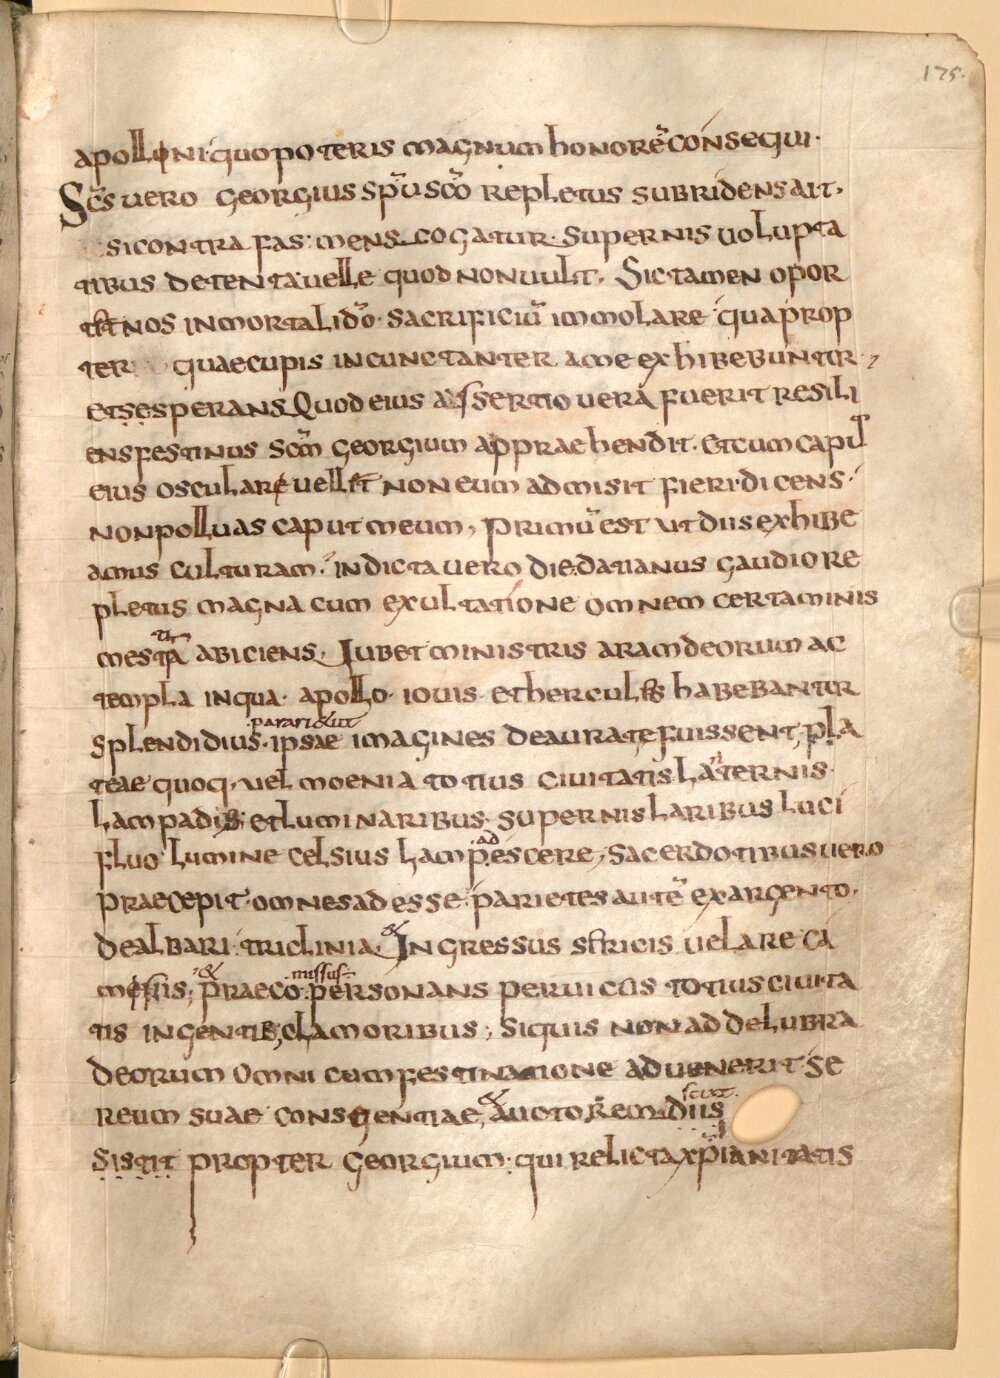 175.
apolloni. quo poteris magnum honorē consequi.
Scs̄ uero georgius sp̄u sc̄o repletus subridens ait.
si contra fas. mens cogatur. supernis uolupta
tibus detenta. uelle quod non uult. Sic tamen opor
tet nos inmortali dō. sacrificiū immolare quaprop
ter quae cupis incunctanter a me exhibebuntur,
et se sperans Quod eius assertio uera fuerit resili
ens festinus scm̄ georgium apprae hendit. et cum caput
eius osculare uellet non eum admisit fieri. dicens.
non polluas caput meum, primū est ut diis exhibe
amus culturam. indicta uero die. datianus gaudio re
pletus magna cum exultatione omnem certaminis
mestitiam abiciens. Iubet ministris aram deorum ac
templa in qua. apollo. iouis et hercules habebantur
pararidiut
splendidius. ipsae imagines deaurate fuissent, pla
teae quoq. uel moenia totius ciuitatis laternis
lampadis et luminaribus. supernis laribus luci
ad
fluo lumine celsius lampescere, sacerdotibus uero
praecepit. omnes adesse. parietes autē ex argento.
&
dealbari. triclinia. Ingressus sericis uelare ca
& missus
praeco. personans per uicos totius ciuita
tis ingentib; clamoribus; si quis non ad delubra
deorum omni cum festinatione aduenerit se
& sciat.
reum suae conscientiae, auctorem diis
sistit propter georgium. qui relicta xp̄ianitatis